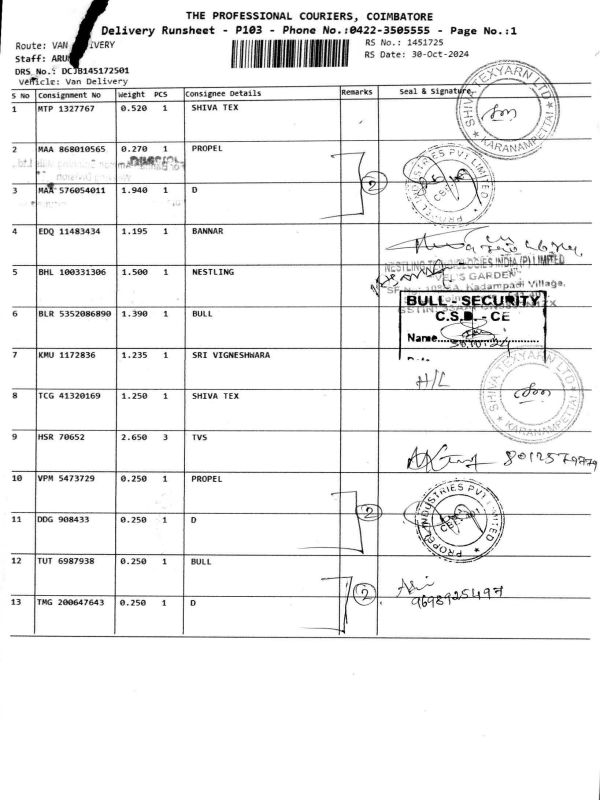 THE PROFESSIONAL COURIERS, COIMBATORE
Delivery Runsheet - P103 - Phone No.:0422-3505555 - Page No.:1
Route: VAN DELIVERY
RS No.: 1451725
Staff: ARU
RS Date: 30-Oct-2024
DRS No.: DCJB145172501
Vehicle: Van Delivery
S No Consignment No Weight PCS Consignee Details Remarks Seal & Signature
1 MTP 1327767 0.520 1 SHIVA TEX
SHIVA TEXYARN LTD
KARANAMPETTAI
2 MAA 868010565 0.270 1 PROPEL
2
PROPEL INDUSTRIES PVT LIMITED
3 MAA 576054011 1.940 1 D
4 EDQ 11483434 1.195 1 BANNAR
NESTLING TECHNOLOGIES INDIA (P) LIMITED
5 BHL 100331306 1.500 1 NESTLING
GARDEN
Kadampadi Village,
6 BLR 5352086890 1.390 1 BULL
BULL - SECURITY
C.S.D. - CE
Name
30.10.24
7 KMU 1172836 1.235 1 SRI VIGNESHWARA
H/L
8 TCG 41320169 1.250 1 SHIVA TEX
SHIVA TEXYARN LTD
KARANAMPETTAI
9 HSR 70652 2.650 3 TVS
8012579779
10 VPM 5473729 0.250 1 PROPEL
2
PROPEL INDUSTRIES PVT LIMITED
11 DDG 908433 0.250 1 D
12 TUT 6987938 0.250 1 BULL
2
9698925497
13 TMG 200647643 0.250 1 D